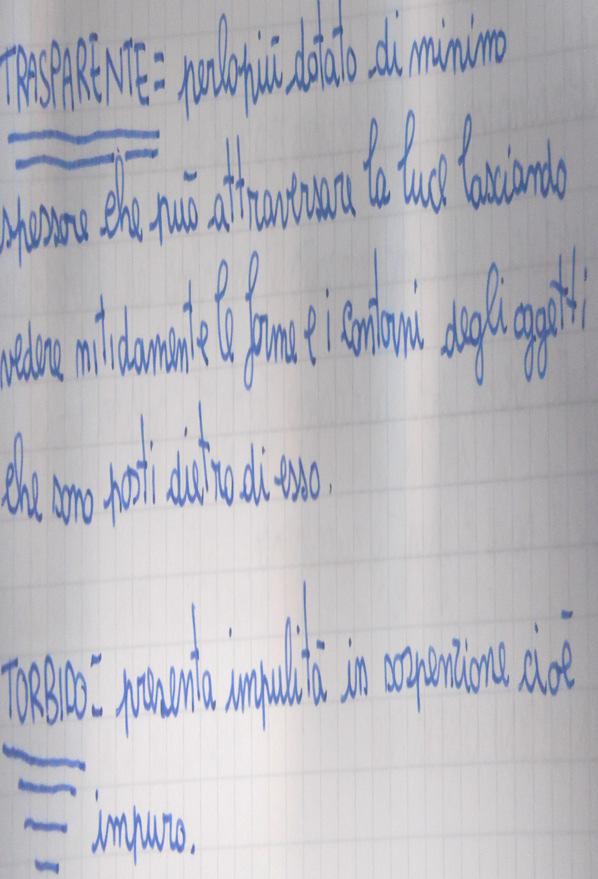 TRASPARENTE= perlopiù dotato di minimo
spessore che può attraversare la luce lasciando
vedere nitidamente le forme e i contorni degli oggetti
che sono posti dietro di esso.
TORBIDO= presenta impulità in sospenzione cioè
impuro.